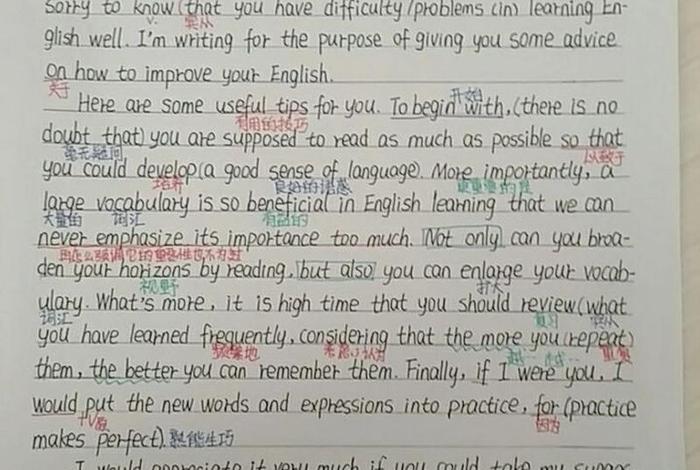 Sorry to know (that you have difficulty/problems (in) learning En-
v. 宾从
glish well. I'm writing for the purpose of giving you some advice
on how to improve your English.
关于
开始
Here are some useful tips for you. To begin with, (there is no
有用的技巧
doubt that) you are supposed to read as much as possible so that
毫无疑问
以致于
you could develop (a good sense of language). More importantly, a
培养 良好的语感 更重要的是
large vocabulary is so beneficial in English learning that we can
大量的 词汇 有益的
never emphasize its importance too much. Not only can you broa-
再怎么强调它的重要性也不为过
den your horizons by reading, but also you can enlarge your vocab-
视野 扩大
ulary. What's more, it is high time that you should review (what
词汇 复习 宾从
you have learned frequently, considering that the more you (repeat)
频繁地 考虑到 越…越… 重复
them, the better you can remember them. Finally, if I were you, I
would put the new words and expressions into practice, for (practice
因为
makes perfect). 熟能生巧
I would appreciate it very much if you could take my sugges